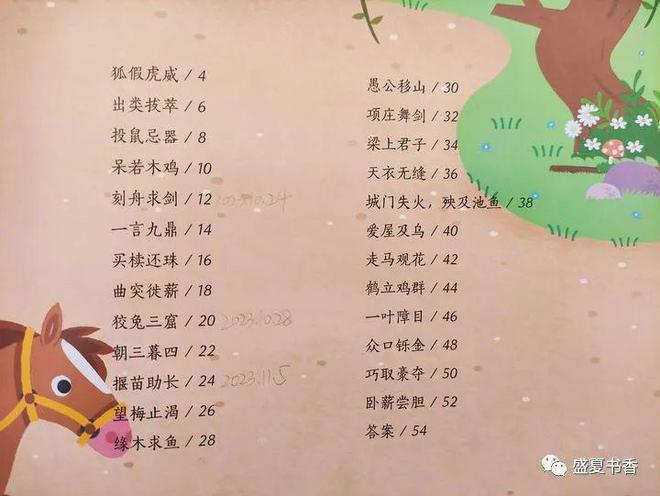 狐假虎威 / 4
出类拔萃 / 6
投鼠忌器 / 8
呆若木鸡 / 10
刻舟求剑 / 12 2023.10.24
一言九鼎 / 14
买椟还珠 / 16
曲突徙薪 / 18
狡兔三窟 / 20 2023.10.28
朝三暮四 / 22
揠苗助长 / 24 2023.11.5
望梅止渴 / 26
缘木求鱼 / 28
愚公移山 / 30
项庄舞剑 / 32
梁上君子 / 34
天衣无缝 / 36
城门失火，殃及池鱼 / 38
爱屋及乌 / 40
走马观花 / 42
鹤立鸡群 / 44
一叶障目 / 46
众口铄金 / 48
巧取豪夺 / 50
卧薪尝胆 / 52
答案 / 54
盛夏书香